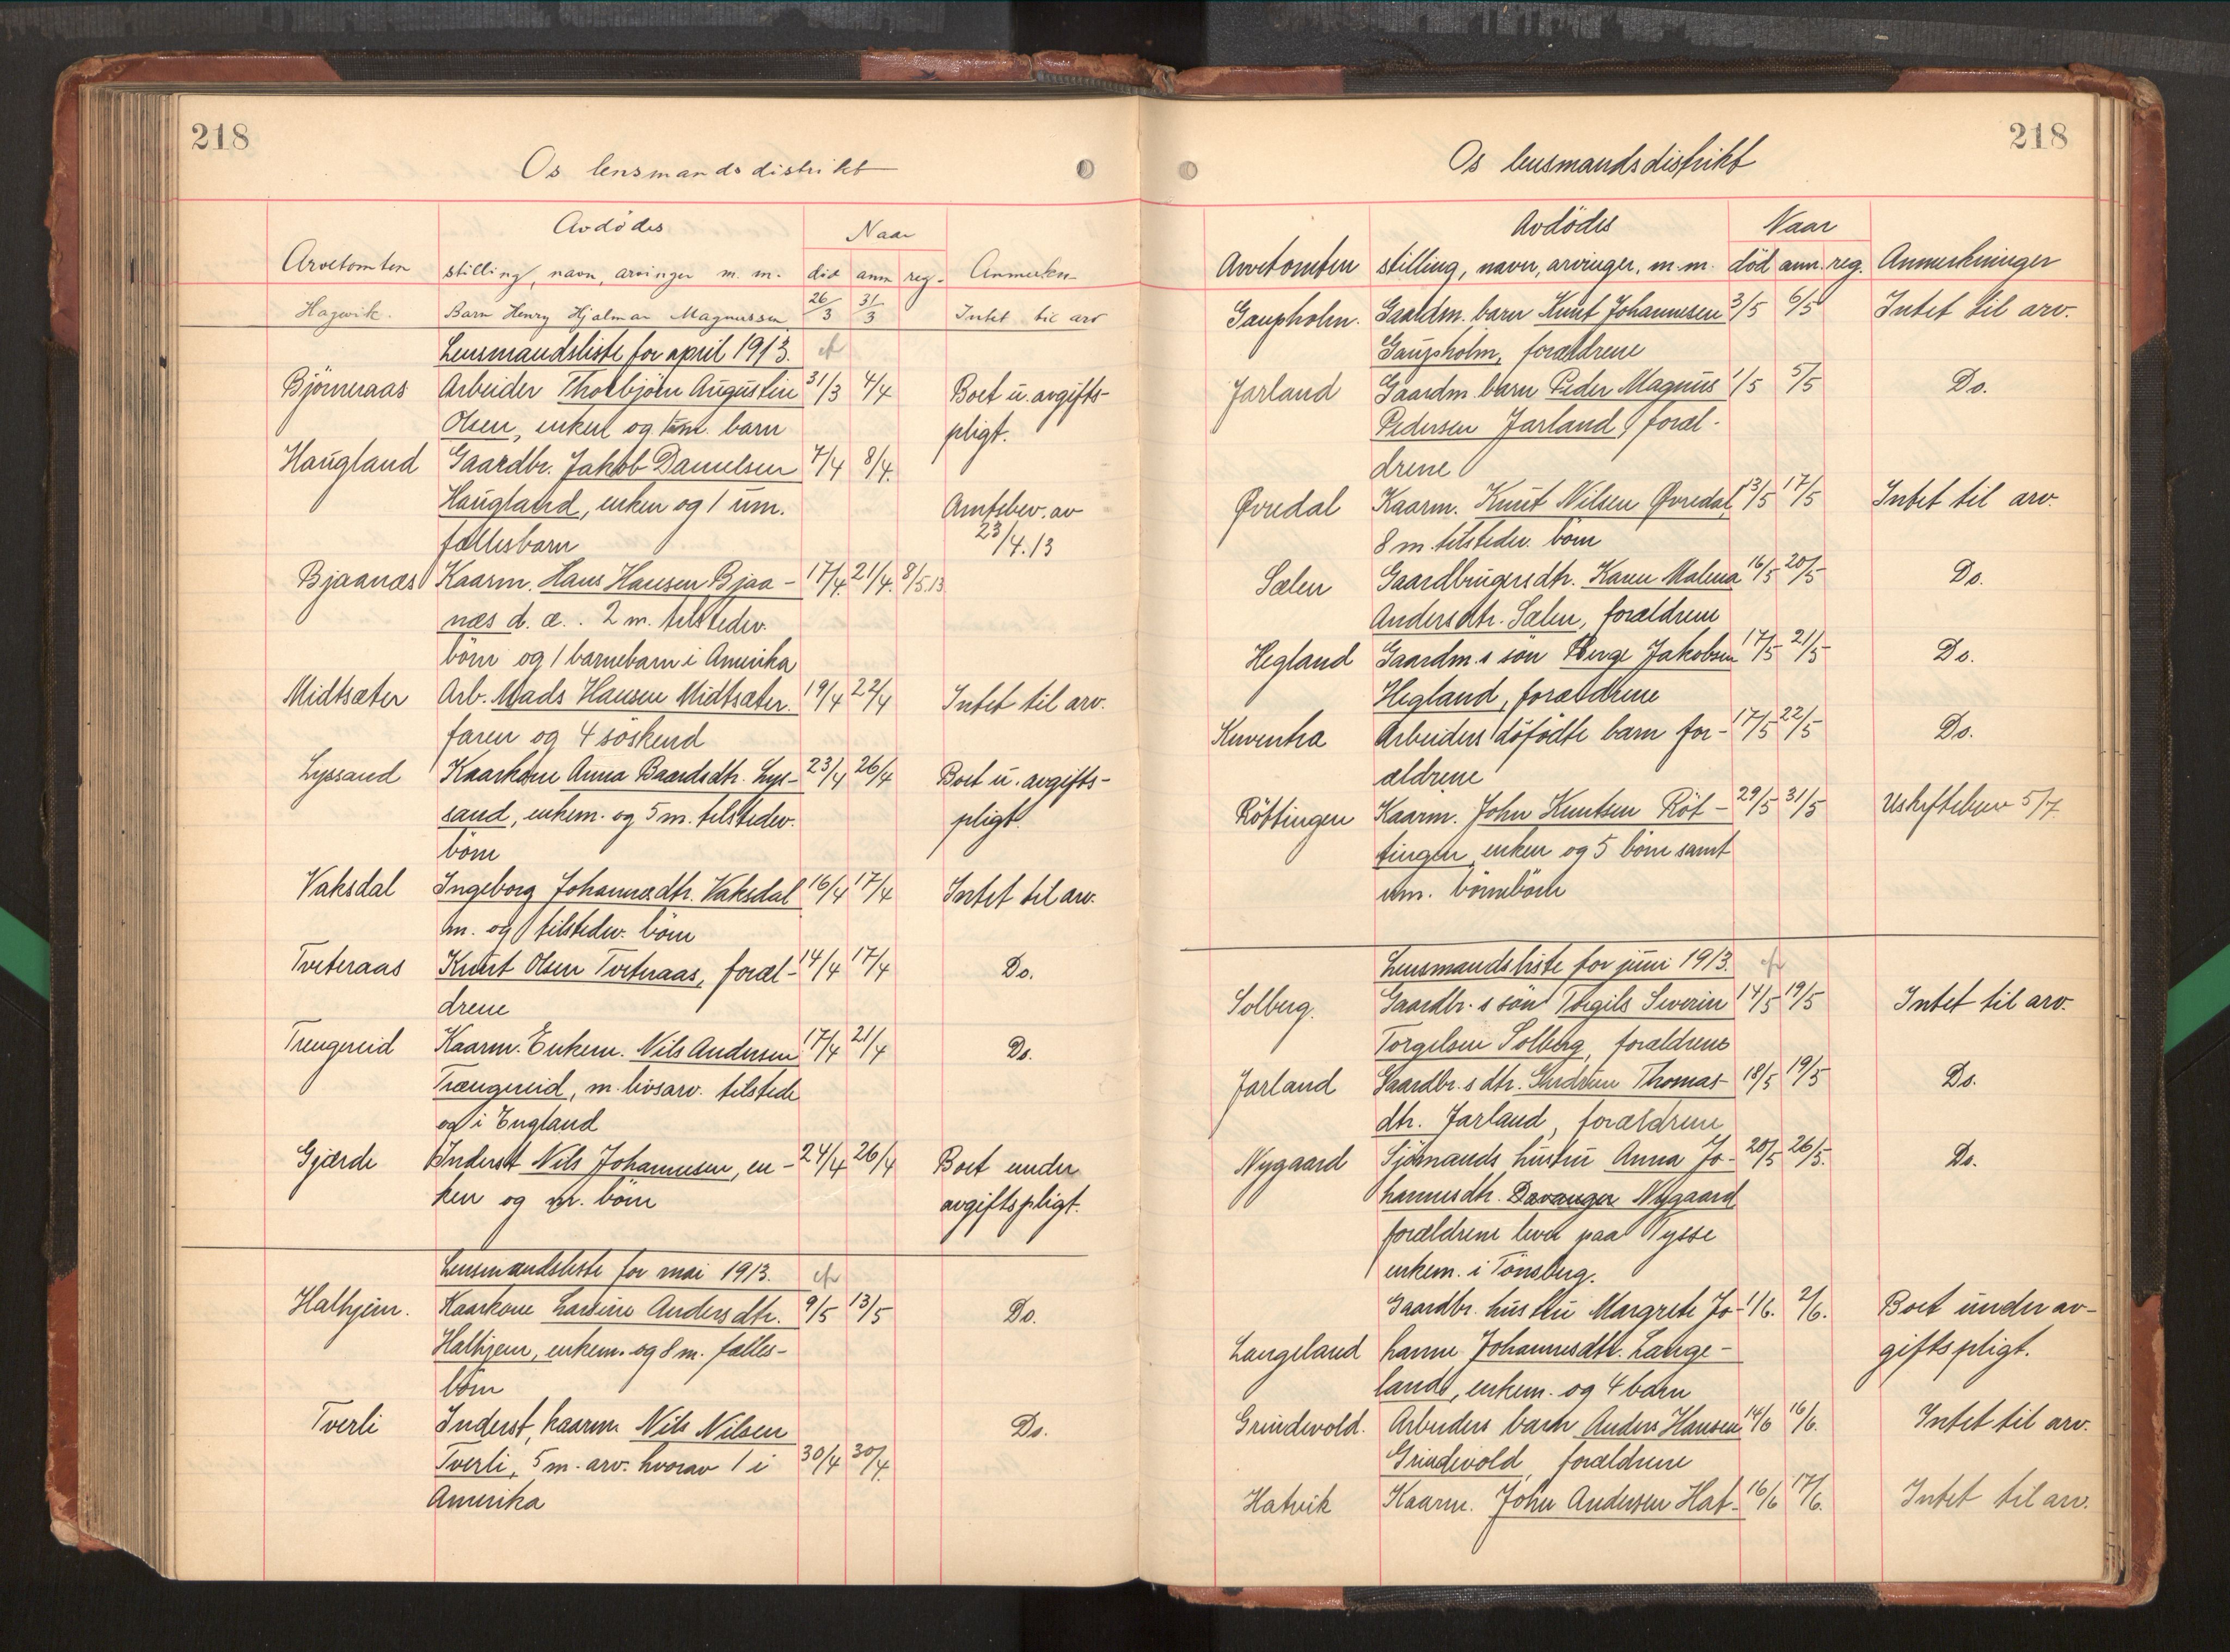 218
Os lensmandsdistrikt
Avdödes
Naar
Arvetomten stilling, navn, arvinger m. m. död anm reg. Anmerkn
Hagvik. Barn Henry Hjalmar Magnussen 26/3 31/3 Intet til arv
Lensmandsliste for april 1913.
Björneraas Arbeider Thorbjörn Augustin 31/3 4/4 Boet u. avgifts-
Olsen, enken og um. barn pligt.
Haugland Gaardbr. Jakob Danielsen 7/4 8/4.
Haugland, enken og 1 um. Amtsbev. av
fællesbarn 23/4.13
Bjaanæs Kaarm. Hans Hansen Bjaa- 17/4. 21/4. 8/5.13
næs d. æ. . 2 m. tilstedev.
börn og 1 barnebarn i Amerika
Midtsæter Arb. Mads Hansen Midtsæter. 19/4 22/4 Intet til arv.
faren og 4 söskend
Lyssand Kaarkone Anna Baardsdtr. Lys- 23/4 26/4 Boet u. avgifts-
sand, enkem. og 5 m. tilstedev. pligt.
börn
Vaksdal Ingeborg Johannesdtr. Vaksdal 16/4 17/4 Intet til arv.
m. og tilstedev. börn
Tveteraas Knut Olsen Tveteraas, foræl- 14/4 17/4 Do.
drene
Trengereid Kaarm. Enkem. Nils Andersen 17/4 21/4 Do.
Trængereid, m. livsarv. tilstede
og i England
Gjærde Inderst Nils Johannesen, en- 24/4 26/4 Boet under
ken og m. börn avgiftspligt.
Lensmandsliste for mai 1913.
Halhjem. Kaarkone Larsine Andersdtr. 9/5 13/5 Do.
Halhjem, enkem. og 8 m. fælles-
börn
Tverli Inderst, kaarm Nils Nilsen Do.
Tverli, 5 m. arv. hvorav 1 i 30/4 30/4
Amerika
218
Os lensmandsdistrikt
Avdödes
Naar
Arvetomten stilling, navn, arvinger, m. m. död anm. reg. Anmerkninger
Gaupholm. Gaardm. barn Knut Johannesen 3/5 6/5 Intet til arv.
Gaupholm, forældrene
Jarland Gaardm. barn Peder Magnus 1/5 5/5 Do.
Pedersen Jarland, foræl-
drene
Øvredal Kaarm. Knut Nilsen Øvredal, 13/5 17/5 Intet til arv.
8 m. tilstedev. börn
Sælen Gaardbrugersdtr. Karen Malena 16/5 20/5 Do.
Andersdtr. Sælen, forældrene
Hegland Gaardm.s sön Börge Jakobsen 17/5 21/5 Do.
Hegland, forældrene
Kuventra Arbeiders döfödte barn for- 17/5 22/5 Do.
ældrene
Röttingen Kaarm. John Knutsen Röt- 29/5 31/5 Uskiftebev 5/7
tingen, enken og 5 börn samt
um. börnebörn
Lensmandsliste for juni 1913.
Solberg. Gaardbr.s sön Torgils Severin 14/5 19/5 Intet til arv.
Torgilsen Solberg, forældrene
Jarland Gaardbr.s dtr. Gudrun Thomas- 18/5 19/5 Do.
dtr. Jarland, forældrene
Nygaard Sjömands hustru Anna Jo- 20/5 26/5. Do.
hannesdtr. Davanger Nygaard
forældrene lever paa Tysse
enkem. i Tönsberg.
Gaardbr. hustru Margrete Jo- 1/6. 2/6. Boet under av-
Langeland hanne Johannesdtr. Lange- giftspligt.
land, enkem. og 4 barn
Grindevold. Arbeiders barn Anders Hansen 14/6 16/6. Intet til arv.
Grindevold, forældrene
Hatvik Kaarm. John Andersen Hat- 16/6 17/6. Intet til arv.